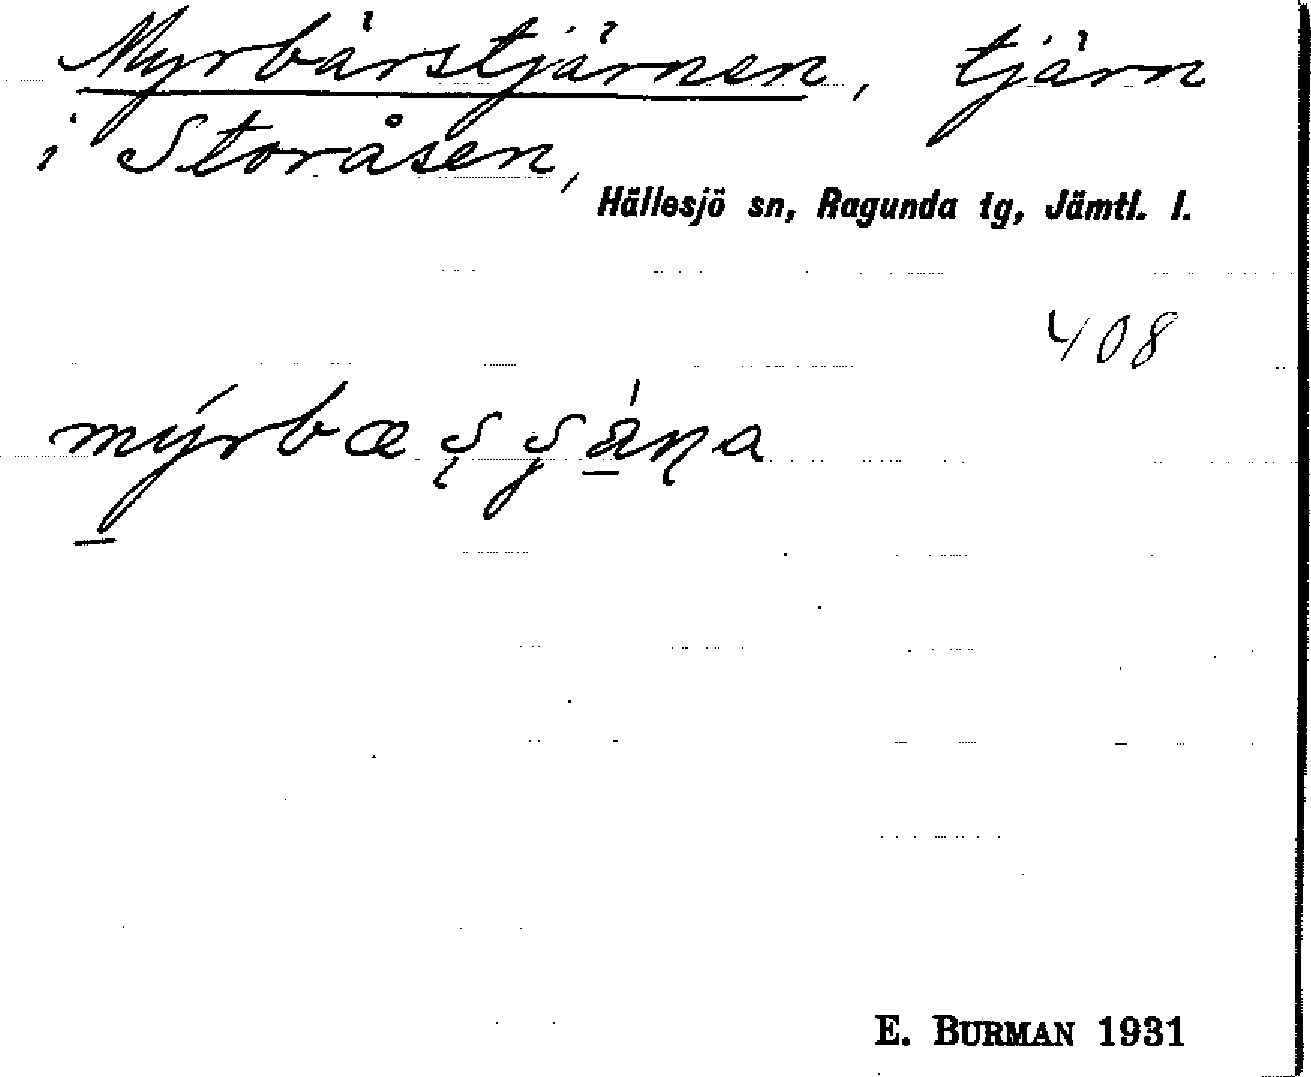 Myrbärstjärnen, tjärn
i Storåsen,
Hällesjö sn, Ragunda tg, Jämtl. l.
408
E. BURMAN 1931